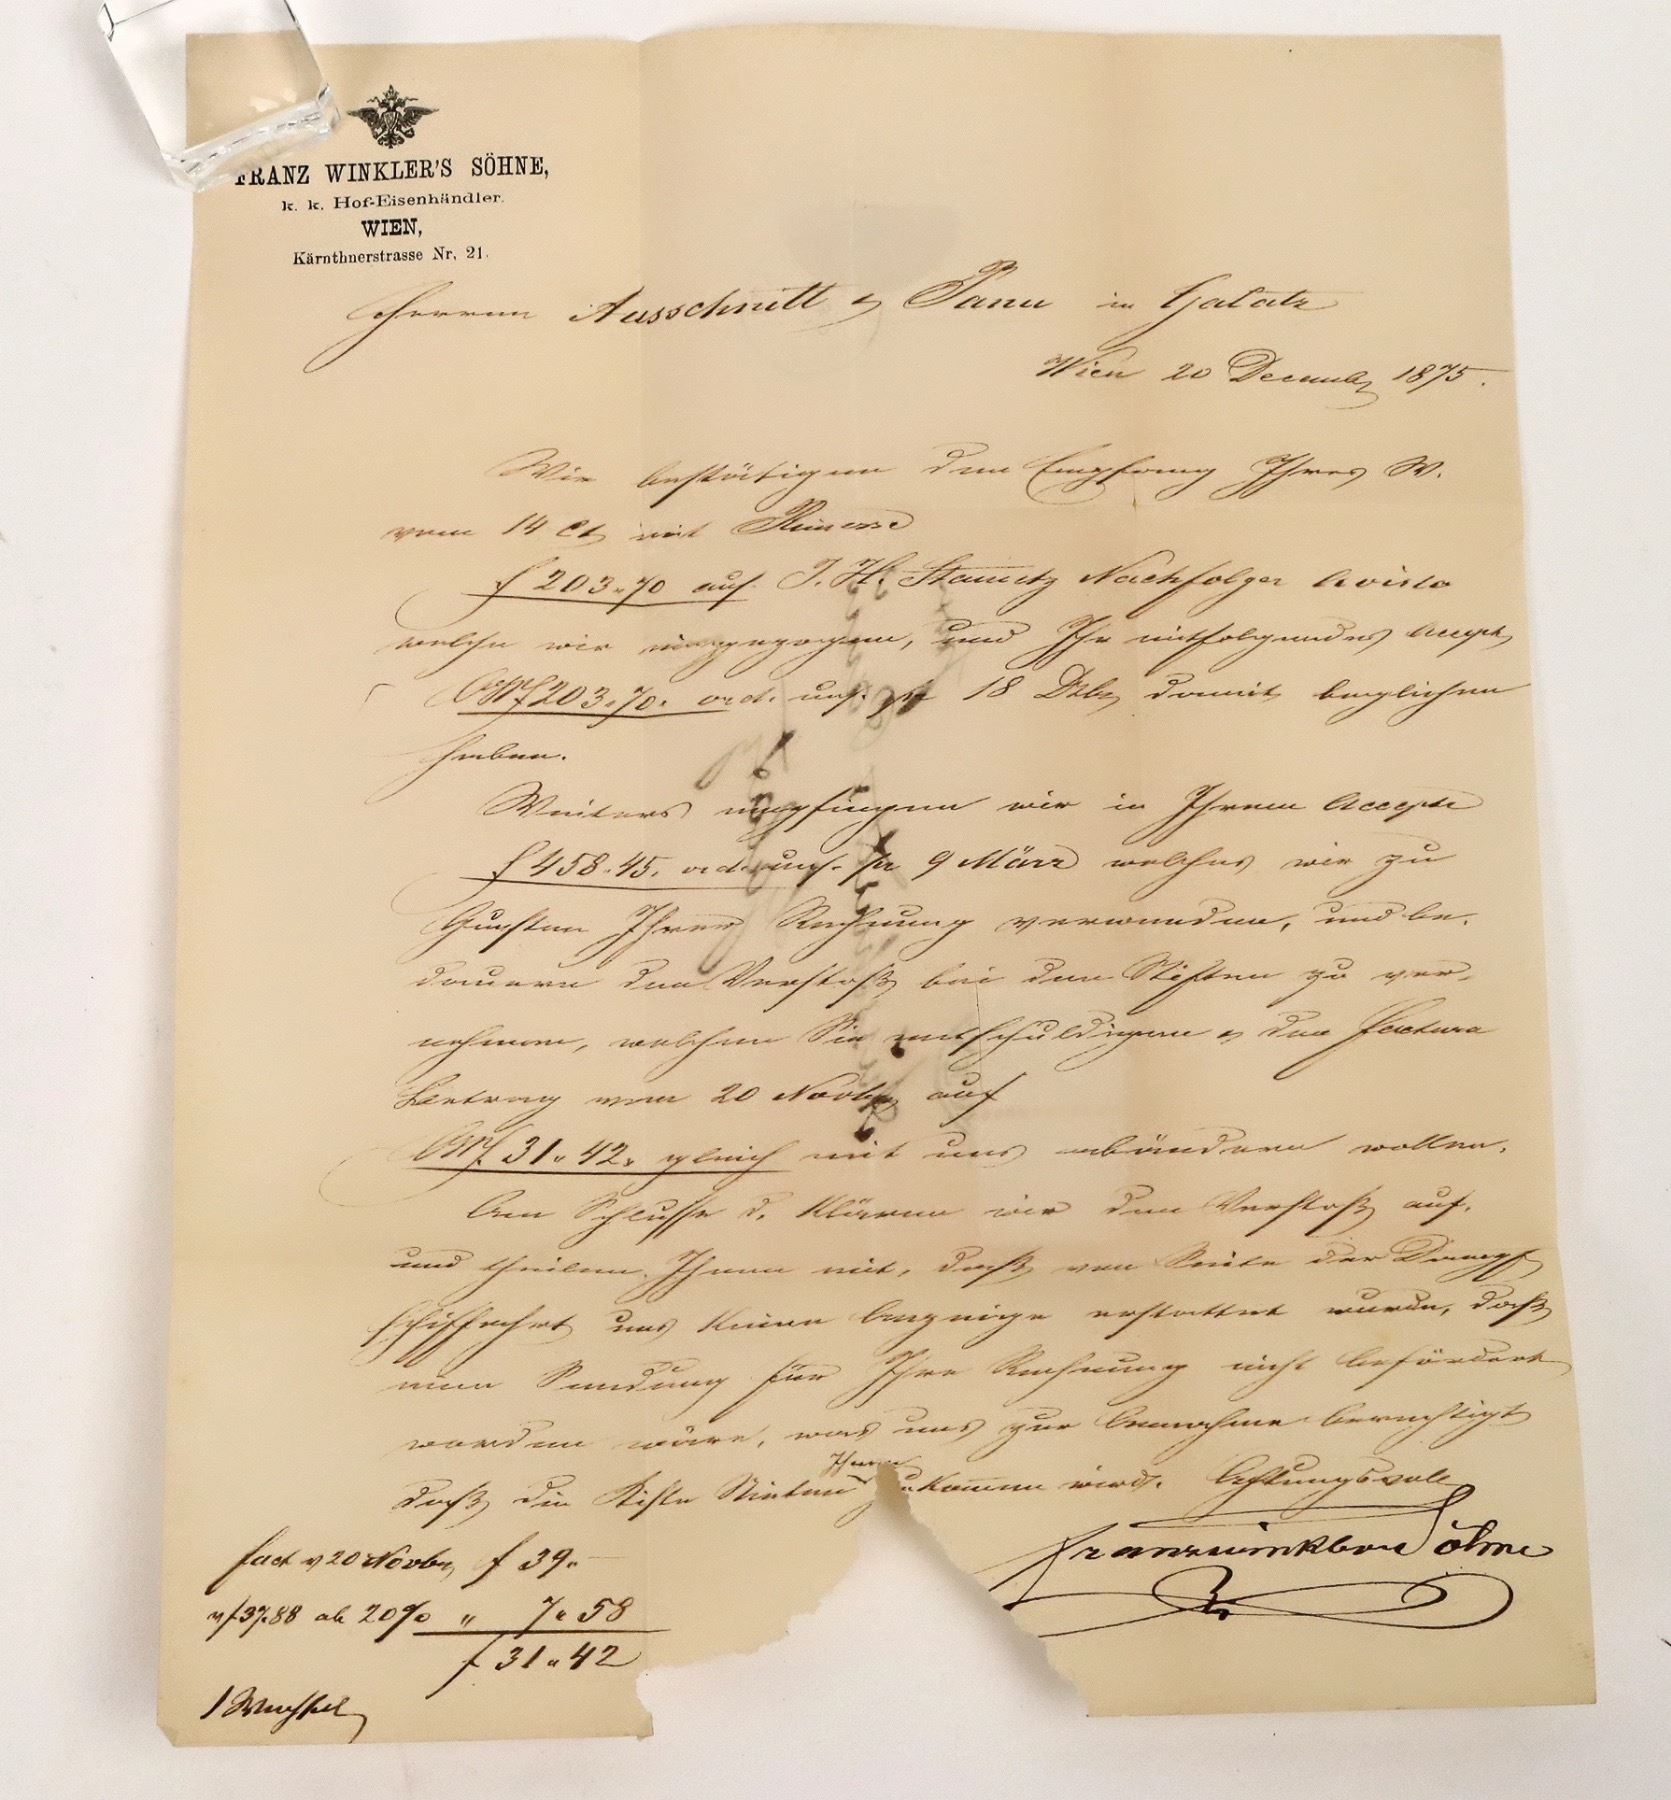 FRANZ WINKLER'S SÖHNE,
k. k. Hof-Eisenhändler.
WIEN,
Kärnthnerstrasse Nr. 21.
Herren Ausschnitt & Panu in Galatz
Wien 20 Decemb 1875.
Wir bestätigen den Empfang Ihres W.
vom 14 ct mit Rimesse
f 203.70 auf J. H. Stametz Nachfolger Avista
welche wir eingezogen, und Ihr mitfolgendes Accept
ÖWf 203.70. ord. uns. pr 18 Dcbr damit beglichen
haben.
Weiters empfingen wir in Ihrem Accepte
f 458.45. ord. uns. pr 9 März welches wir zu
Gunsten Ihrer Rechnung verwenden, und be-
dauern den Verstoß bei den Stiften zu ver-
nehmen, welchen Sie entschuldigen & den Factura
Betrag vom 20 Novbr auf
ÖWf. 31.42. gleich mit uns abändern wollen.
Am Schlusse d. klären wir den Verstoß auf.
und theilen Ihnen mit, daß von Seite der Dampf
schiffahrt uns keine Anzeige erstattet wurde, daß
eine Sendung für Ihre Rechnung nicht befördert
worden wäre, was uns zur Annahme berechtigt
daß die Kiste Nieten Ihnen zukomen wird. Achtungsvoll
Franz Winklers Söhne
fact v 20 Novbr f 39.-
v/f 37.88 ab 20% " 7.58
f 31.42
1 Wechsel